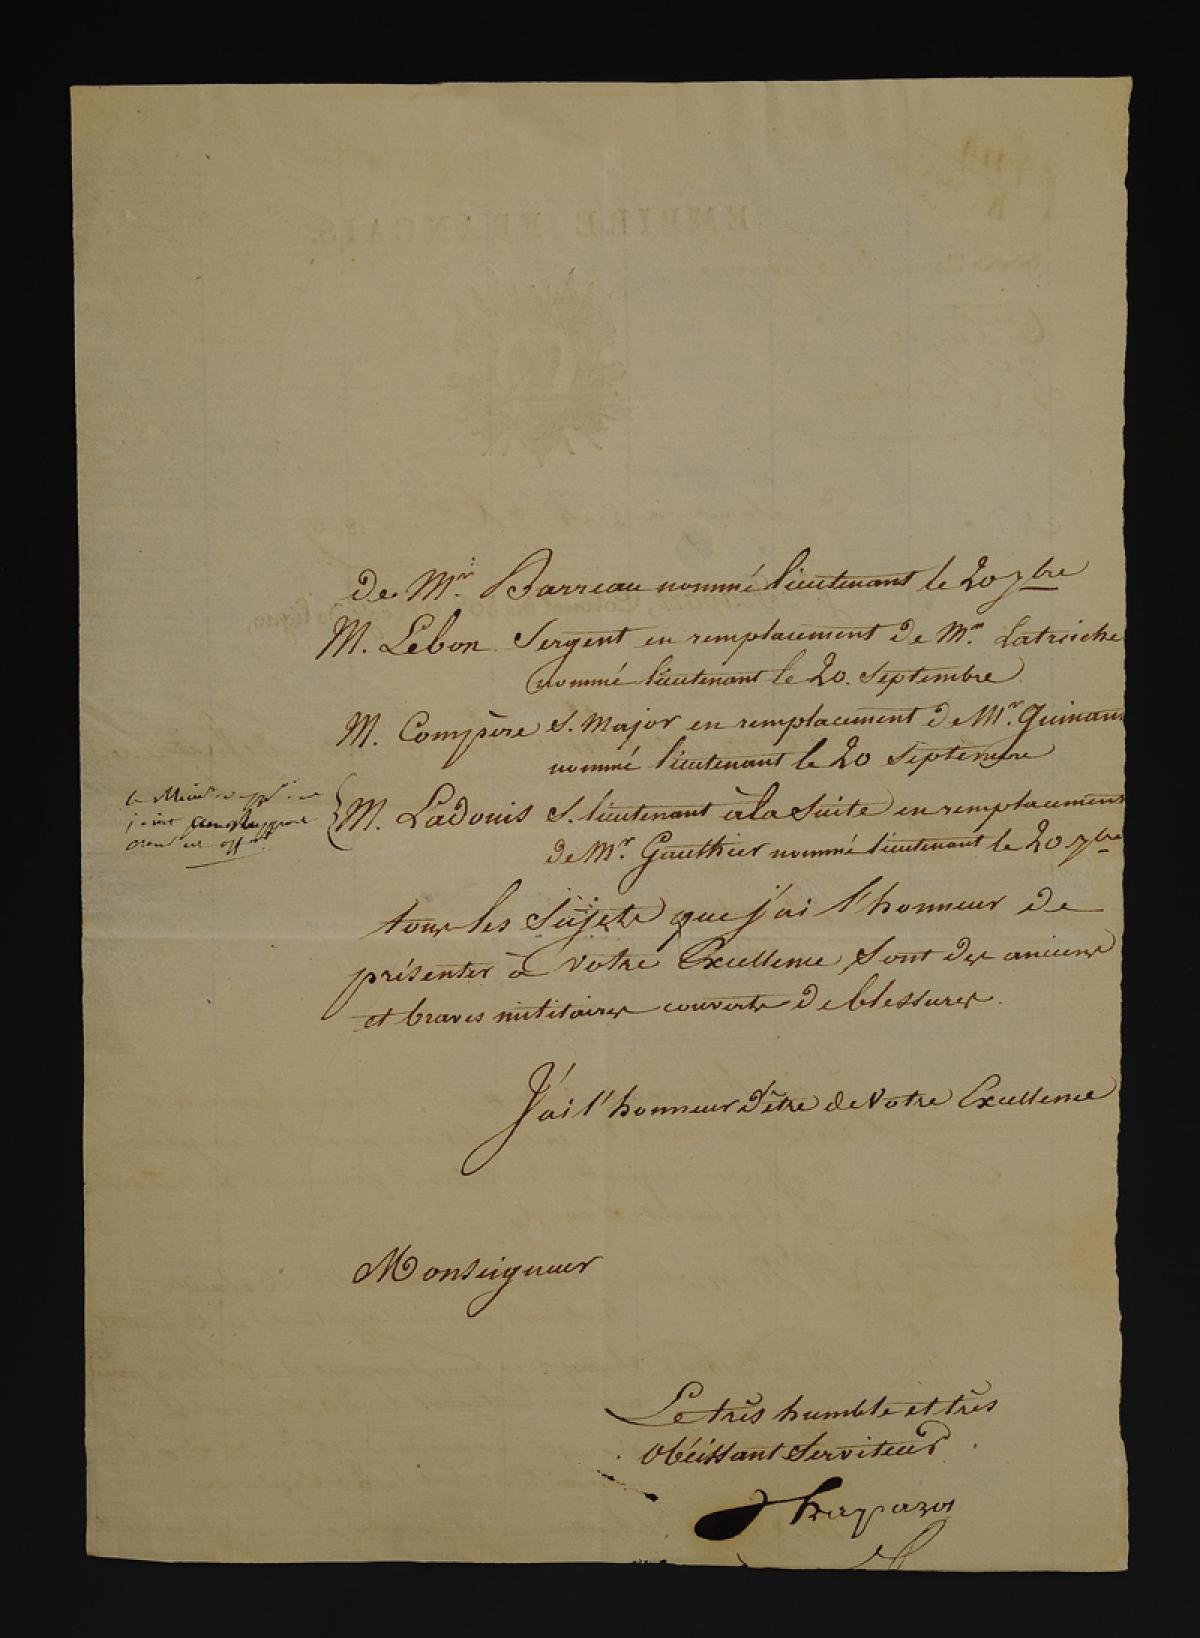 de Mr. Barreau nommé lieutenant le 20 7bre
M. Lebon Sergent en remplacement de Mr. Latreiche
nommé lieutenant le 20. Septembre
M. Compère S. Major en remplacement de Mr. Guinau
nommé lieutenant le 20 Septembre
M. Ladouis S. lieutenant à la Suite en remplacement
de Mr. Gauthier nommé lieutenant le 20 7bre
tous les Sujets que j'ai l'honneur de
présenter à Votre Excellence Sont des anciens
et braves militaires couverts de blessures.
J'ai l'honneur d'être de Votre Excellence
Monseigneur
Le très humble et très
Obéissant Serviteur
EMPIRE FRANÇAIS.